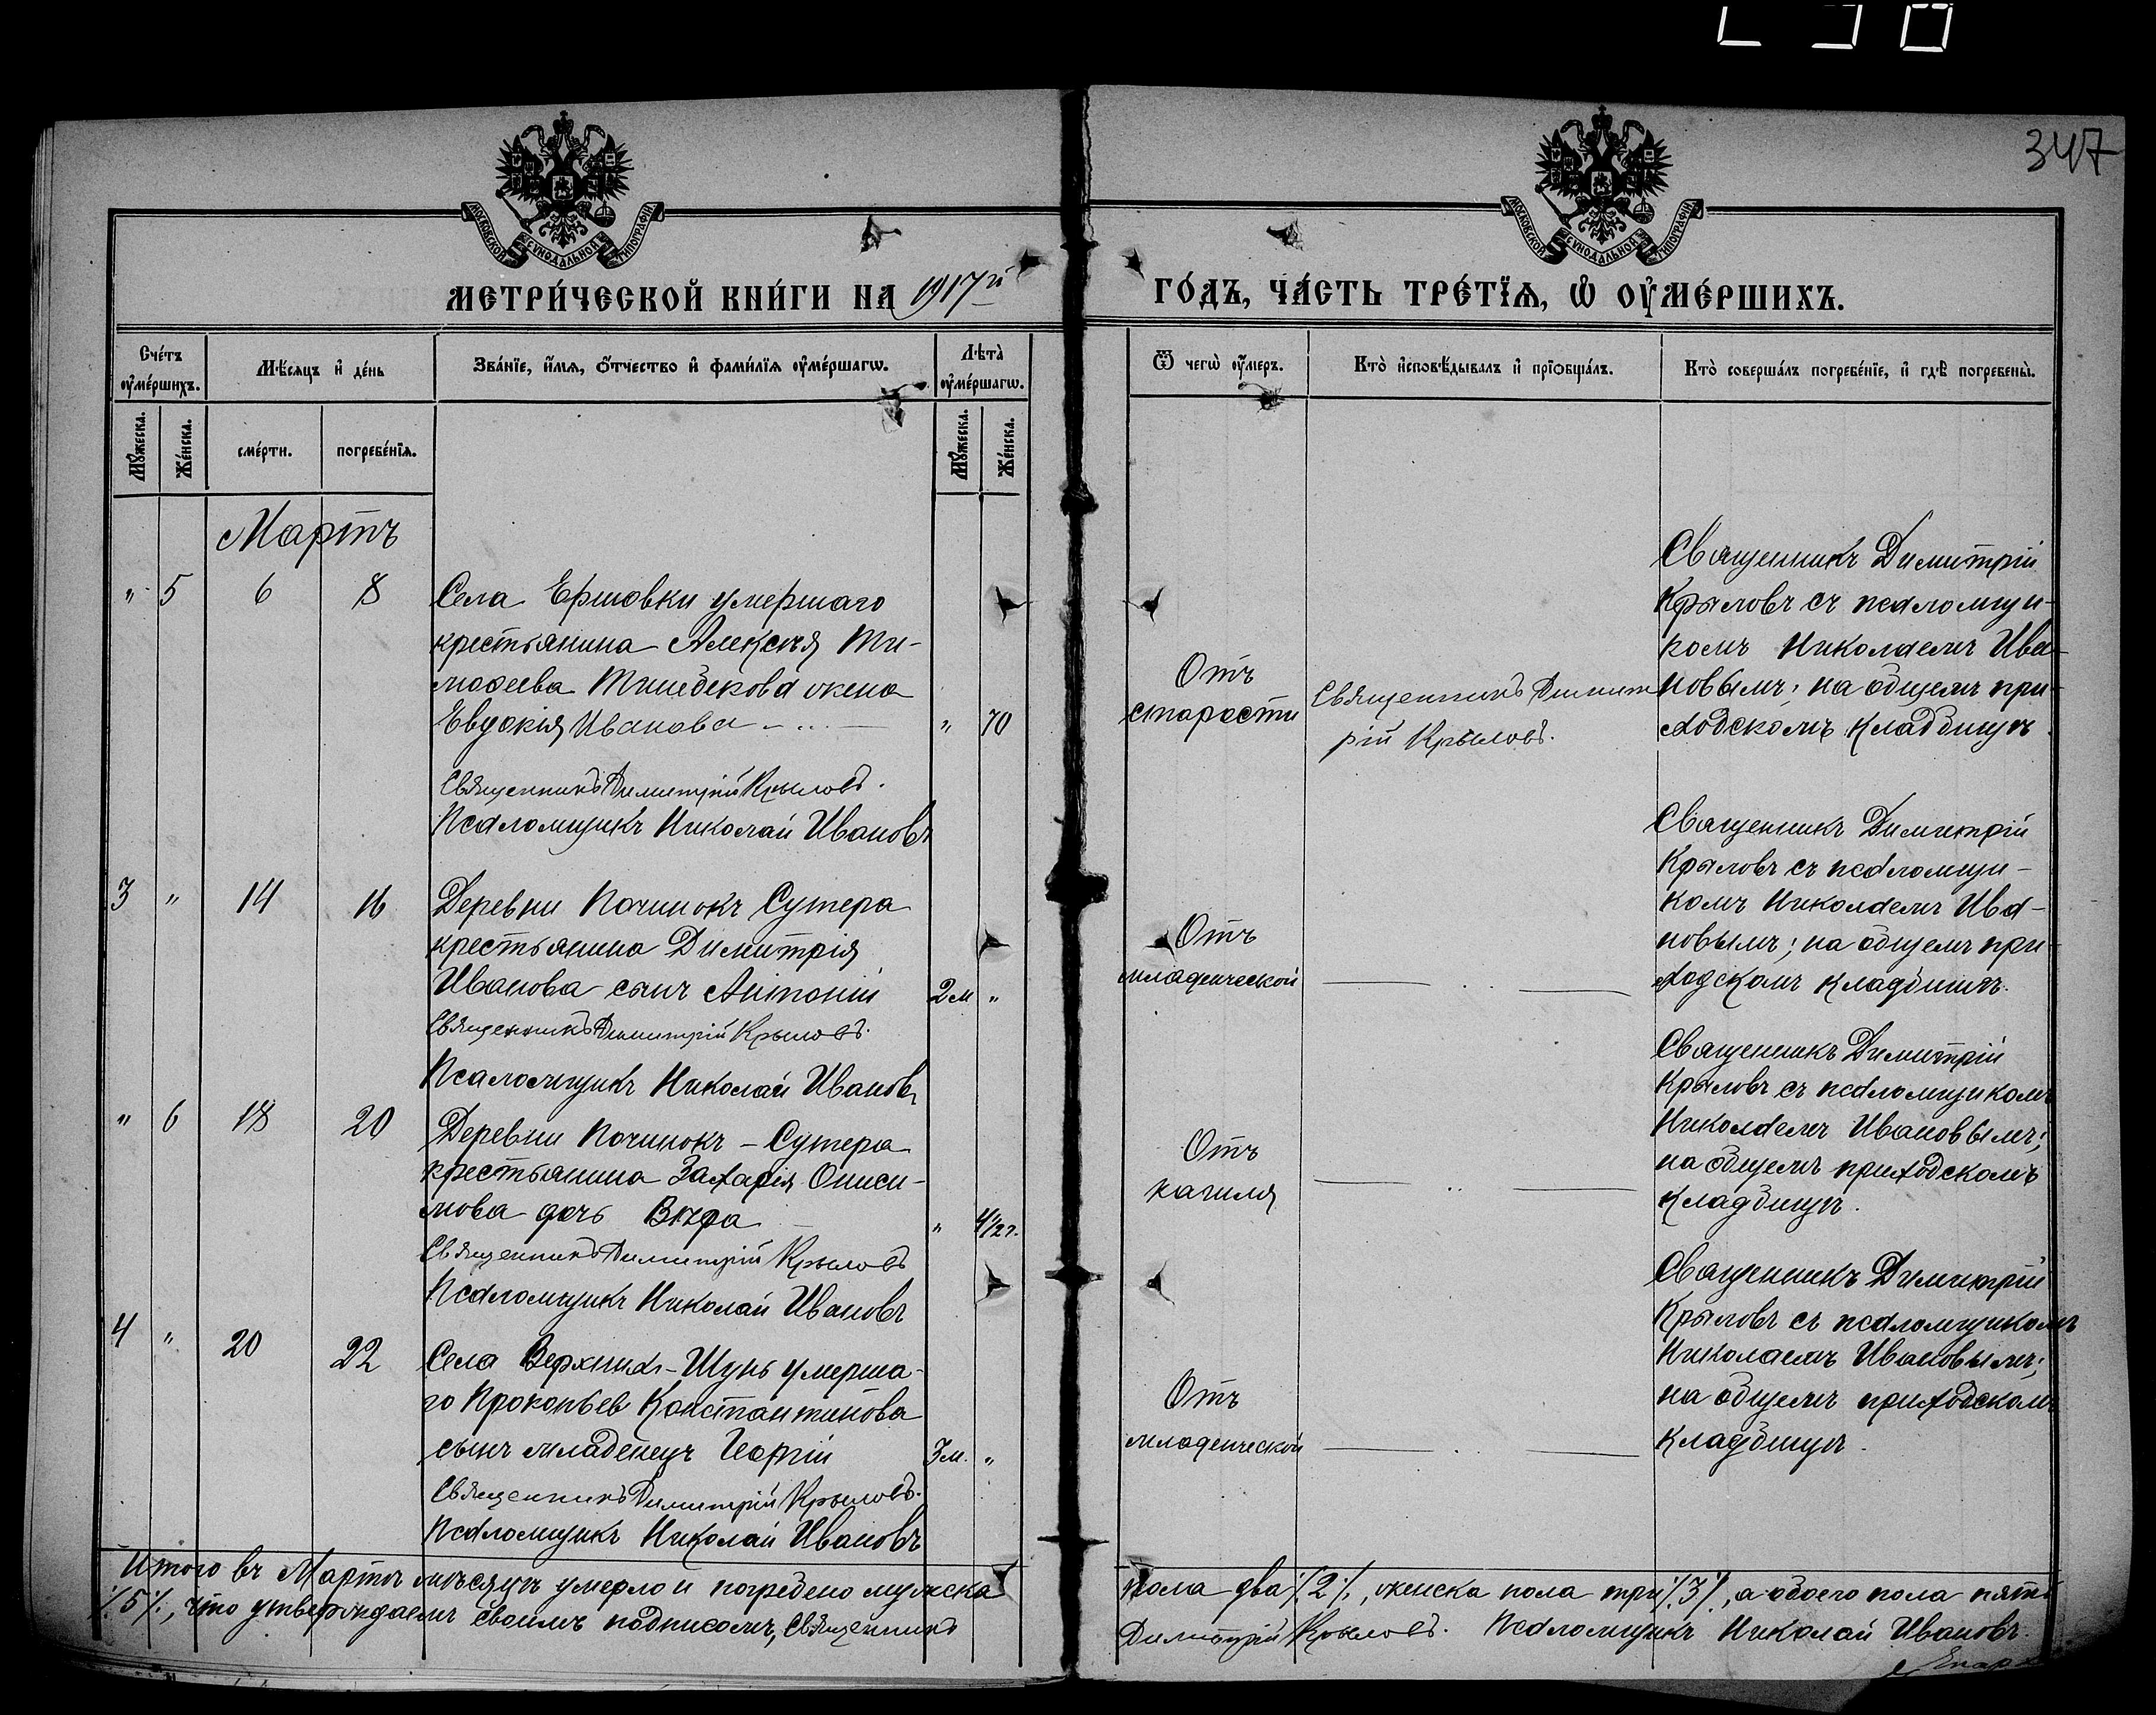 347
МОСКОВСКОЙ СУНОДАЛЬНОЙ ТИПОГРАФІИ
МОСКОВСКОЙ СУНОДАЛЬНОЙ ТИПОГРАФІИ
МЕТРИ́ЧЕСКОЙ КНИ́ГИ НА 1917й ГО́ДЪ, ЧА́СТЬ ТРЕ́ТЇѦ, Ѡ҆ ОУ҆МЕ́РШИХЪ.
Сче́тъ оу҆ме́ршихъ.
Мѣ́сѧцъ и҆ де́нь
Зва́нїе, и҆́мѧ, ѻ҆́тчество и҆ фами́лїѧ оу҆ме́ршагѡ.
Лѣ́та оу҆ме́ршагѡ.
Ѿ чегѡ̀ оу҆́меръ.
Кто̀ и҆сповѣ́дывалъ и҆ прїѻбща́лъ.
Кто̀ соверша́лъ погребе́нїе, и҆ гдѣ̀ погребены̀.
Мꙋ́жеска.
Же́нска.
сме́рти.
погребе́нїѧ.
Мꙋ́жеска.
Же́нска.
Мартъ
" 5 6 8
Села Ершовки умершаго
крестьянина Алексѣя Ти-
моѳеева жена
Евдокія Иванова " 70
Священникъ Димитрій Крыловъ.
Псаломщикъ Николай Ивановъ
Отъ
старости
Священникъ Димит
рій Крыловъ.
Священникъ Димитрій
Крыловъ съ псаломщи-
комъ Николаемъ Ива-
новымъ; на общемъ при-
ходскомъ кладбищѣ
3 " 14 16
Деревни Починокъ Сутера
крестьянина Димитрія
Иванова сынъ Антоній 2м "
Священникъ Димитрій Крыловъ.
Псаломщикъ Николай Ивановъ
Отъ
младенческой
Священникъ Димитрій
Крыловъ съ псаломщи-
комъ Николаемъ Ива-
новымъ; на общемъ при-
ходскомъ кладбищѣ.
" 6 18 20
Деревни Починокъ - Сутера
крестьянина Захарія Ониси-
мова дочь Вѣра " 4 1/2 г.
Священникъ Димитрій Крыловъ
Псаломщикъ Николай Ивановъ
Отъ
кашля
Священникъ Димитрій
Крыловъ съ псаломщикомъ
Николаемъ Ивановымъ;
на общемъ приходскомъ
кладбищѣ.
4 " 20 22
Села Верхнихъ-Шунъ умерша-
го Прокопьев Константинова
сынъ младенецъ Георгій 3м. "
Священникъ Димитрій Крыловъ.
Псаломщикъ Николай Ивановъ
Отъ
младенческой
Священникъ Димитрій
Крыловъ съ псаломщикомъ
Николаемъ Ивановымъ;
на общемъ приходскомъ
кладбищѣ.
Итого въ Мартѣ мѣсяцѣ умерло и погребено мужска пола два ./.2./., женска пола три ./.3./., а обоего пола пять
./.5./., что утверждаемъ своимъ подписомъ, Священникъ Димитрій Крыловъ. Псаломщикъ Николай Ивановъ.